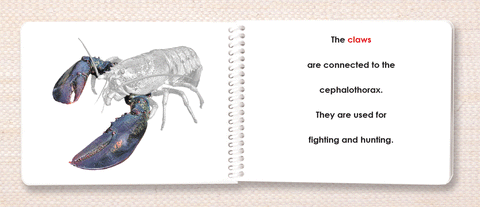 The claws
are connected to the
cephalothorax.
They are used for
fighting and hunting.